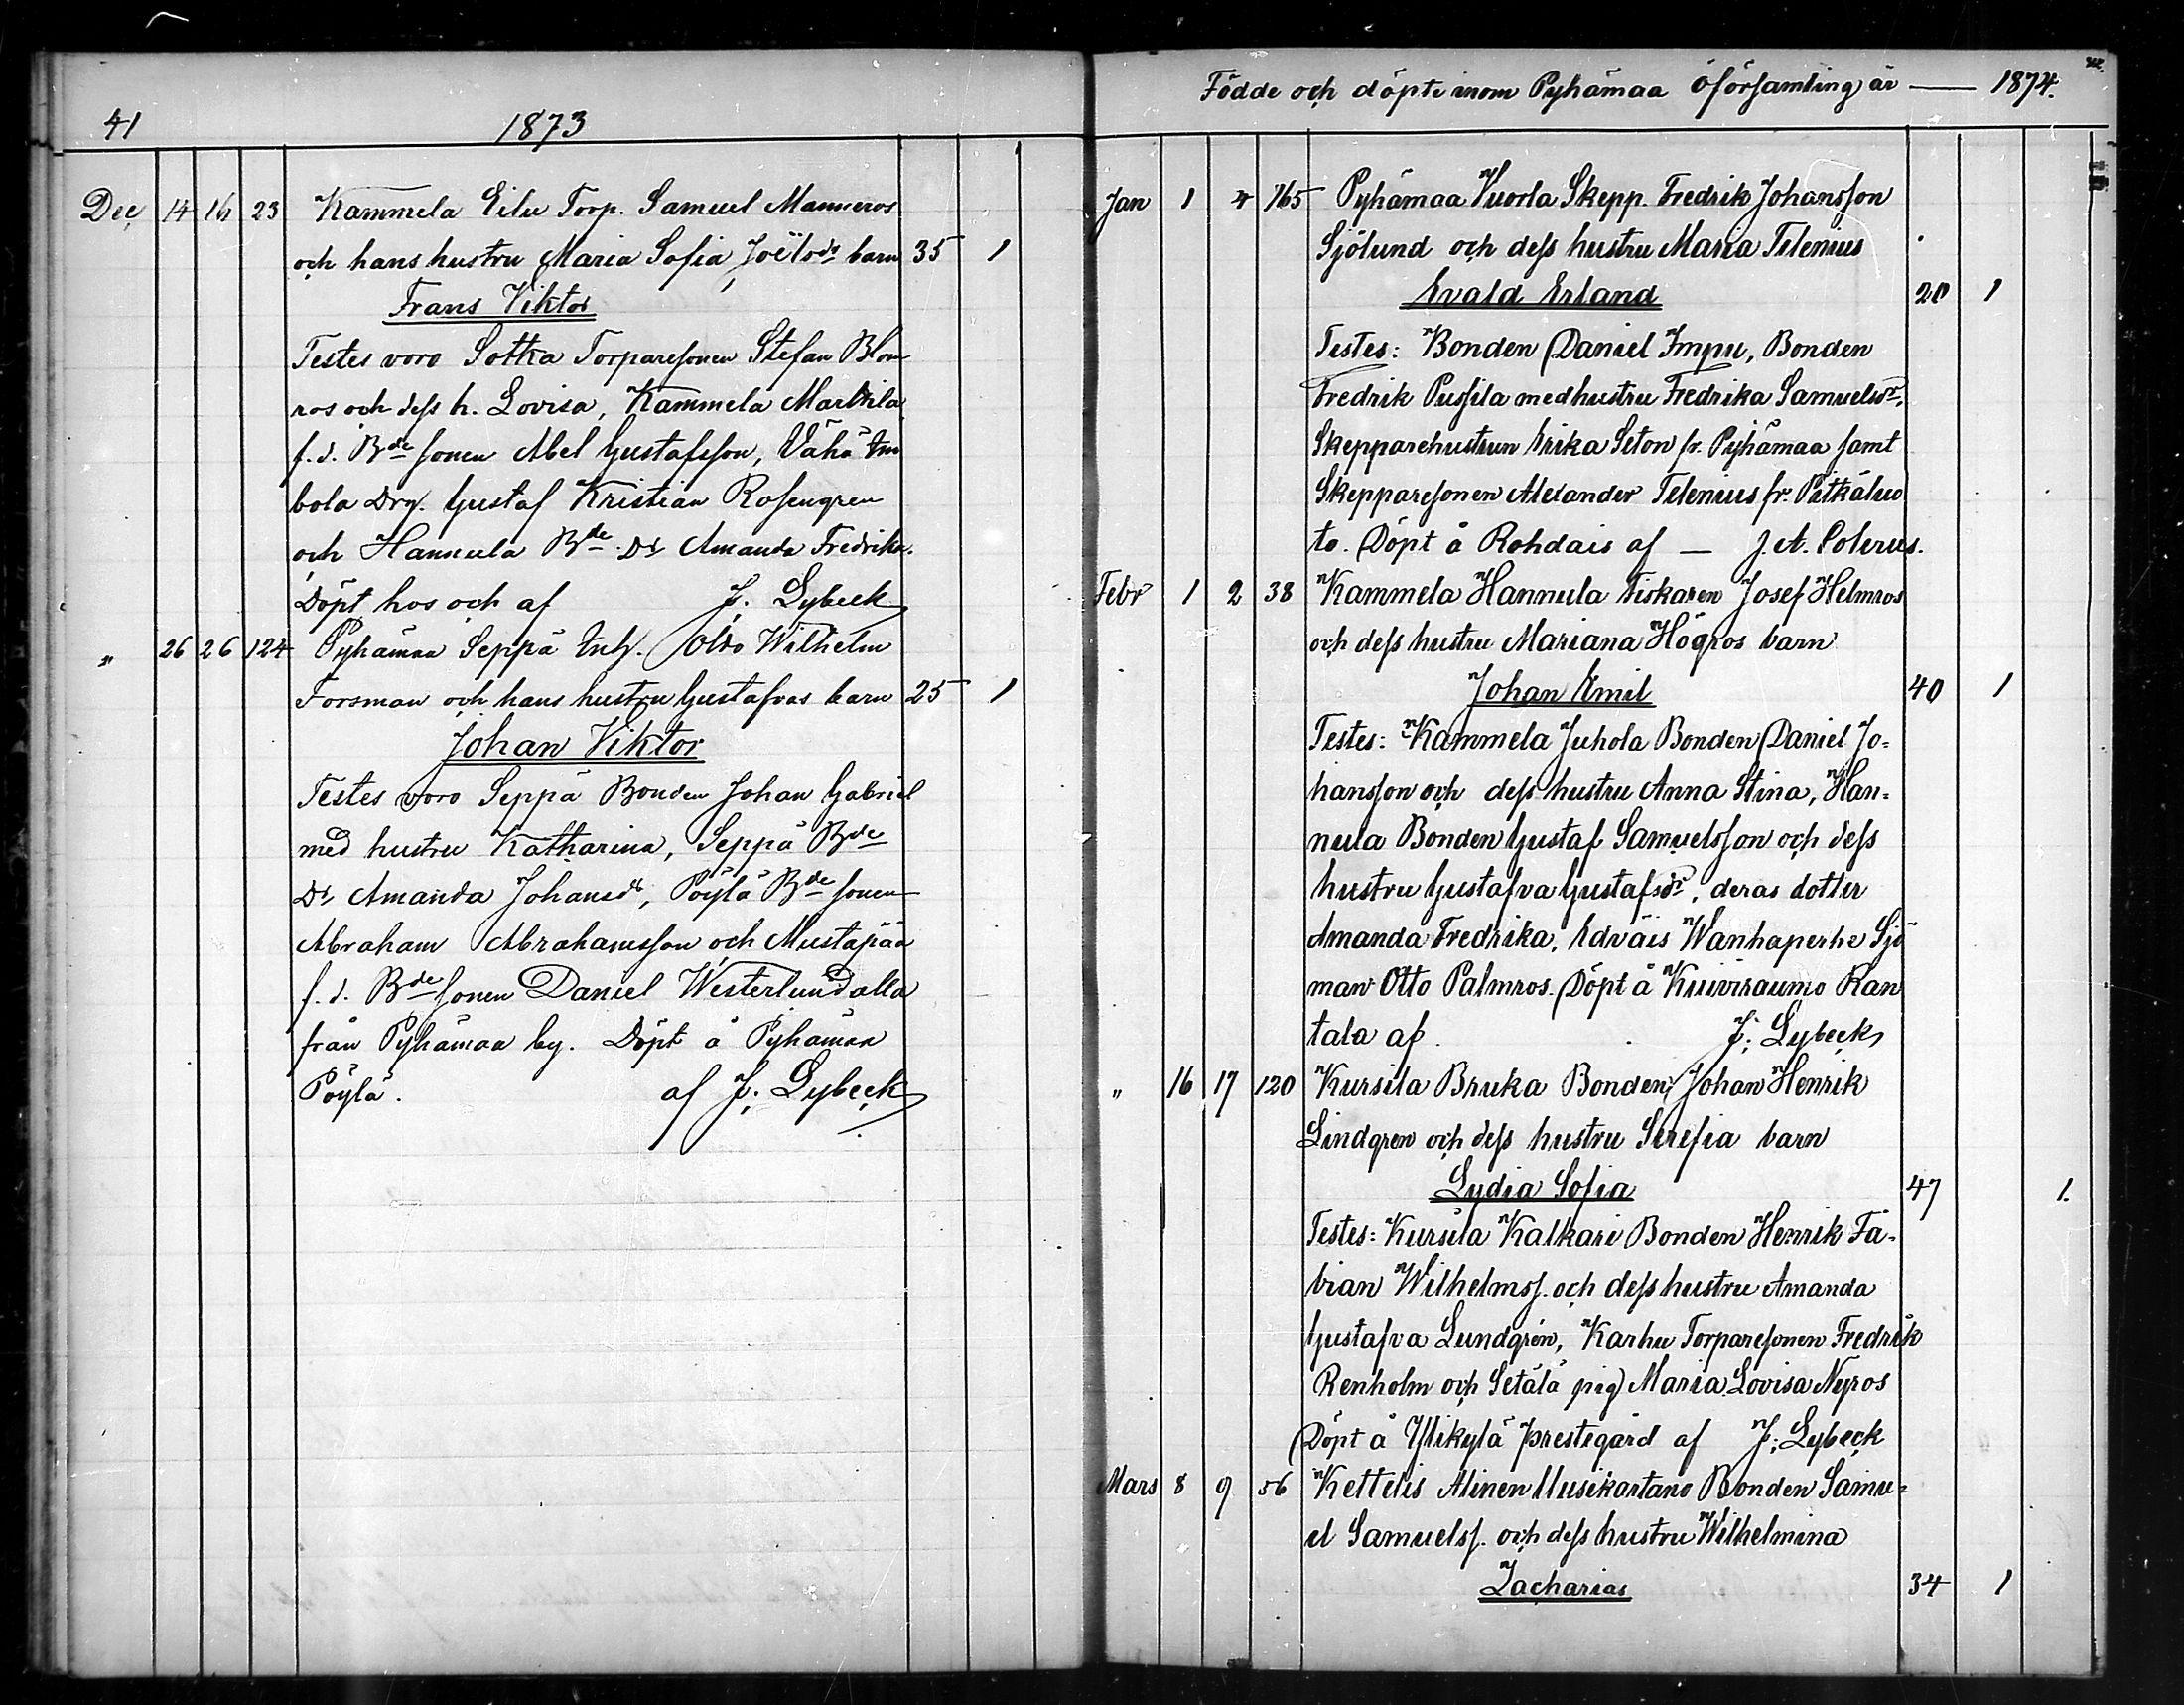 41
1873
Dec 14 16 23 Kammela Eilu Torp. Samuel Manneros
och hans hustru Maria Sofia Joëlsdr barn 35 1
Frans Viktor
Testes voro Sotka Torparesonen Stefan Blom
ros och dess h. Lovisa, Kammela Marttila
f.d. Bde sonen Abel Gustafsson, Vähä Im
bola Drg. Gustaf Kristian Rosengren
och Hannula Bde Dr Amanda Fredrika.
Döpt hos och af J. Lybeck
" 26 26 124 Pyhämaa Seppä Inh. Otto Wilhelm
Forsman och hans hustru Gustafvas barn 25 1
Johan Viktor
Testes voro Seppä Bonden Johan Gabriel
med hustru Katharina, Seppä Bde
Dr Amanda Johansdr, Pöylä Bde sonen
Abraham Abrahamsson och Mustapää
f.d. Bde sonen Daniel Westerlund alla
från Pyhämaa by. Döpt å Pyhämaa
Pöylä. af J. Lybeck
Födde och döpte inom Pyhämaa öförsamling år — 1874.
Jan 1 4 165 Pyhämaa Vuorla Skepp. Fredrik Johansson
Sjölund och dess hustru Maria Telenius
Evald Erland 20 1
Testes: Bonden Daniel Impu, Bonden
Fredrik Pussila med hustru Fredrika Samuelsdr,
Skepparehustrun Erika Seton fr. Pyhämaa samt
Skepparesonen Alexander Telenius fr. Pitkäluo
to. Döpt å Rohdais af — J. A. Polerus.
Febr 1 2 38 Kammela Hannula Fiskaren Josef Helmros
och dess hustru Mariana Högros barn
Johan Emil 40 1
Testes: Kammela Juhola Bonden Daniel Jo=
hansson och dess hustru Anna Stina, Han=
nula Bonden Gustaf Samuelsson och dess
hustru Gustafva Gustafsdr, deras dotter
Amanda Fredrika, Edväis Wanhaperhe Sjö
man Otto Palmros. Döpt å Kuiviraumo Ran
tala af J. Lybeck
" 16 17 120 Kursila Bruka Bonden Johan Henrik
Lindgren och dess hustru Serefia barn
Lydia Sofia 47 1.
Testes: Kursila Kalkari Bonden Henrik Fa=
bian Wilhelmss. och dess hustru Amanda
Gustafva Lundgrén, Karhu Torparesonen Fredrik
Renholm och Setälä pig Maria Lovisa Nyros
Döpt å Ylikylä prestegård af J. Lybeck
Mars 8 9 56 Kettelis Alinen Uusikartano Bonden Samu=
el Samuelss. och dess hustru Wilhelmina
Zacharias 34 1